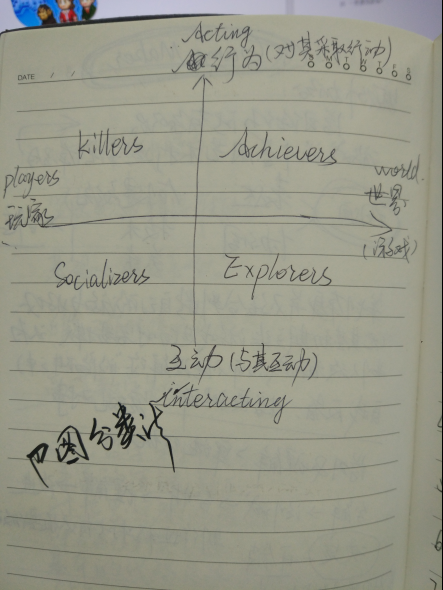 Acting
行为(对其采取行动)
DATE
Killers
Achievers
players
玩家
world
世界
(游戏)
Socializers
Explorers
互动(与其互动)
interacting
巴图分类法